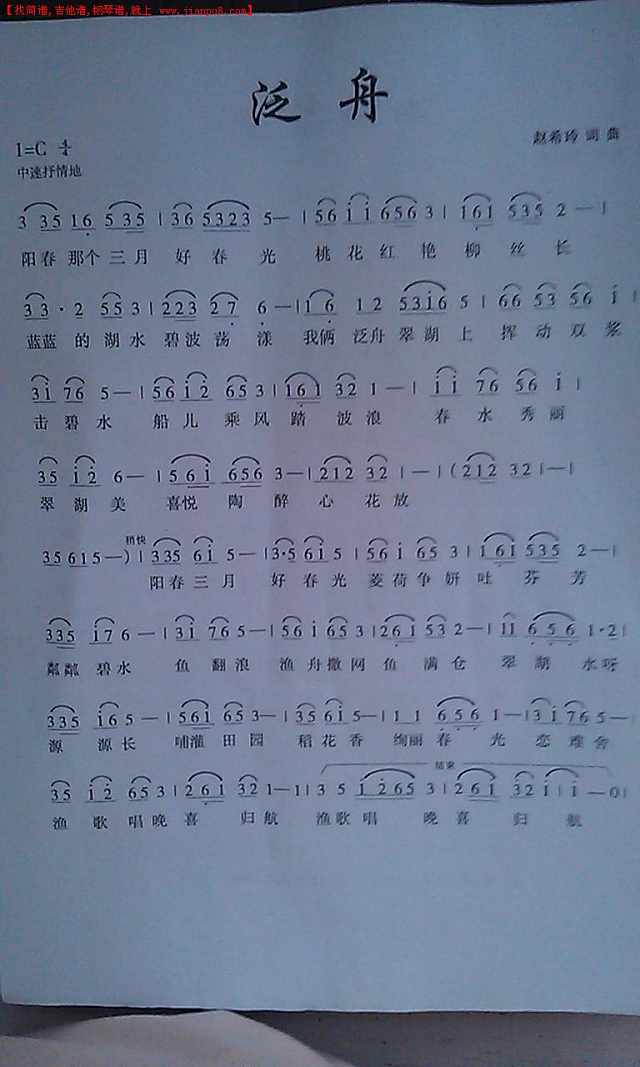 【找简谱,吉他谱,钢琴谱,就上 www.jianpu8.com】
泛舟
赵希玲 词 曲
1=C
中速抒情地
3 35 16 535 | 36 5323 5— | 56 ii 656 3 | 161 535 2 — |
阳春 那个 三月 好 春 光 桃 花 红 艳 柳 丝 长
33· 2 55 3 | 223 27 6 — | 16 12 53i6 5 | 66 53 56 i |
蓝蓝 的 湖水 碧波 荡 漾 我俩 泛舟 翠 湖 上 挥 动 双 桨
3i 76 5— | 56 i2 65 3 | 161 32 1 — | ii 76 56 i |
击 碧 水 船 儿 乘 风 踏 波 浪 春 水 秀 丽
35 i2 6— | 56i 656 3— | 212 32 1 — | (212 32 1—|
翠 湖 美 喜悦 陶 醉 心 花 放
稍快
35615—) | 335 6i 5— | 3·5 6i5 | 56 i 65 3 | 161 535 2— |
阳春 三 月 好 春 光 菱 荷 争 妍 吐 芬 芳
335 i76— | 3i 765— | 56i 653 | 261 53 2— | 11 656 1·2 |
粼粼 碧水 鱼 翻浪 渔 舟 撒网 鱼 满 仓 翠 湖 水呀
335 i65— | 56i 653— | 35 6i5— | 11 656 1— | 3i 765— |
源 源长 哺灌 田园 稻花香 绚丽春 光 恋 难舍
结束
35 i2 653 | 261 32 1—1 | 3 5 i265 3 | 261 32 i | i —0 |
渔 歌 唱晚 喜 归航 渔歌唱 晚 喜 归 航